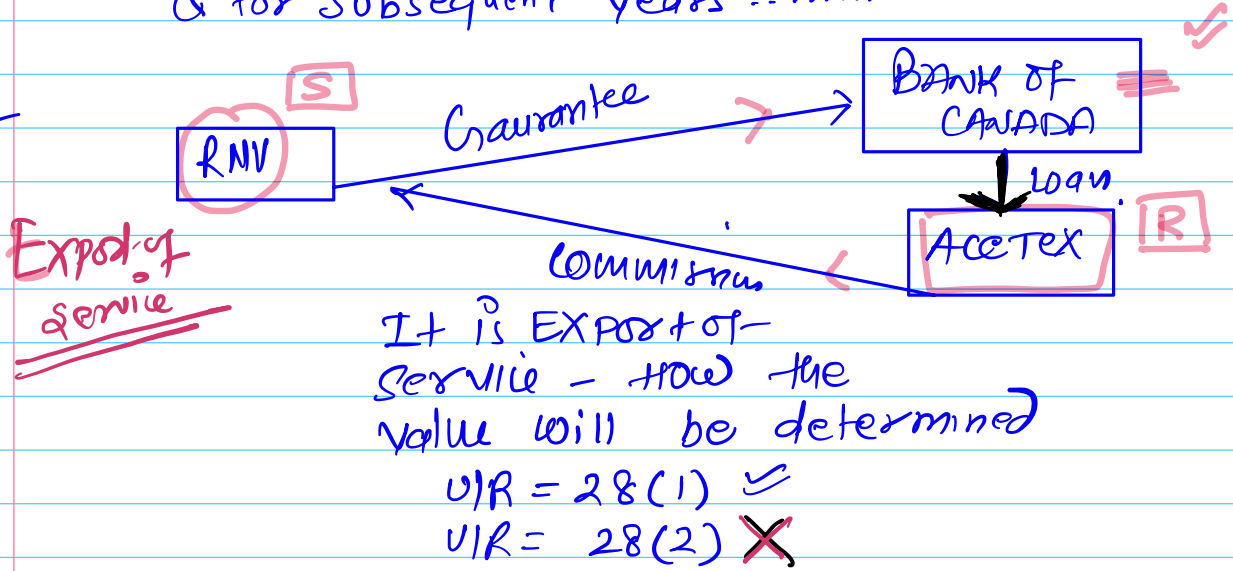 & for subsequent years
S
RNV
Gaurantee
BANK OF
CANADA
Loan.
R
ACETEX
Commission
Export of
Service
It is Export of
Service - How the
Value will be determined
U/R = 28(1)
U/R = 28(2)